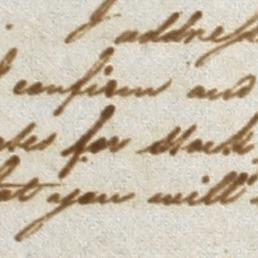 I address
I confirm and
for stock
that you will